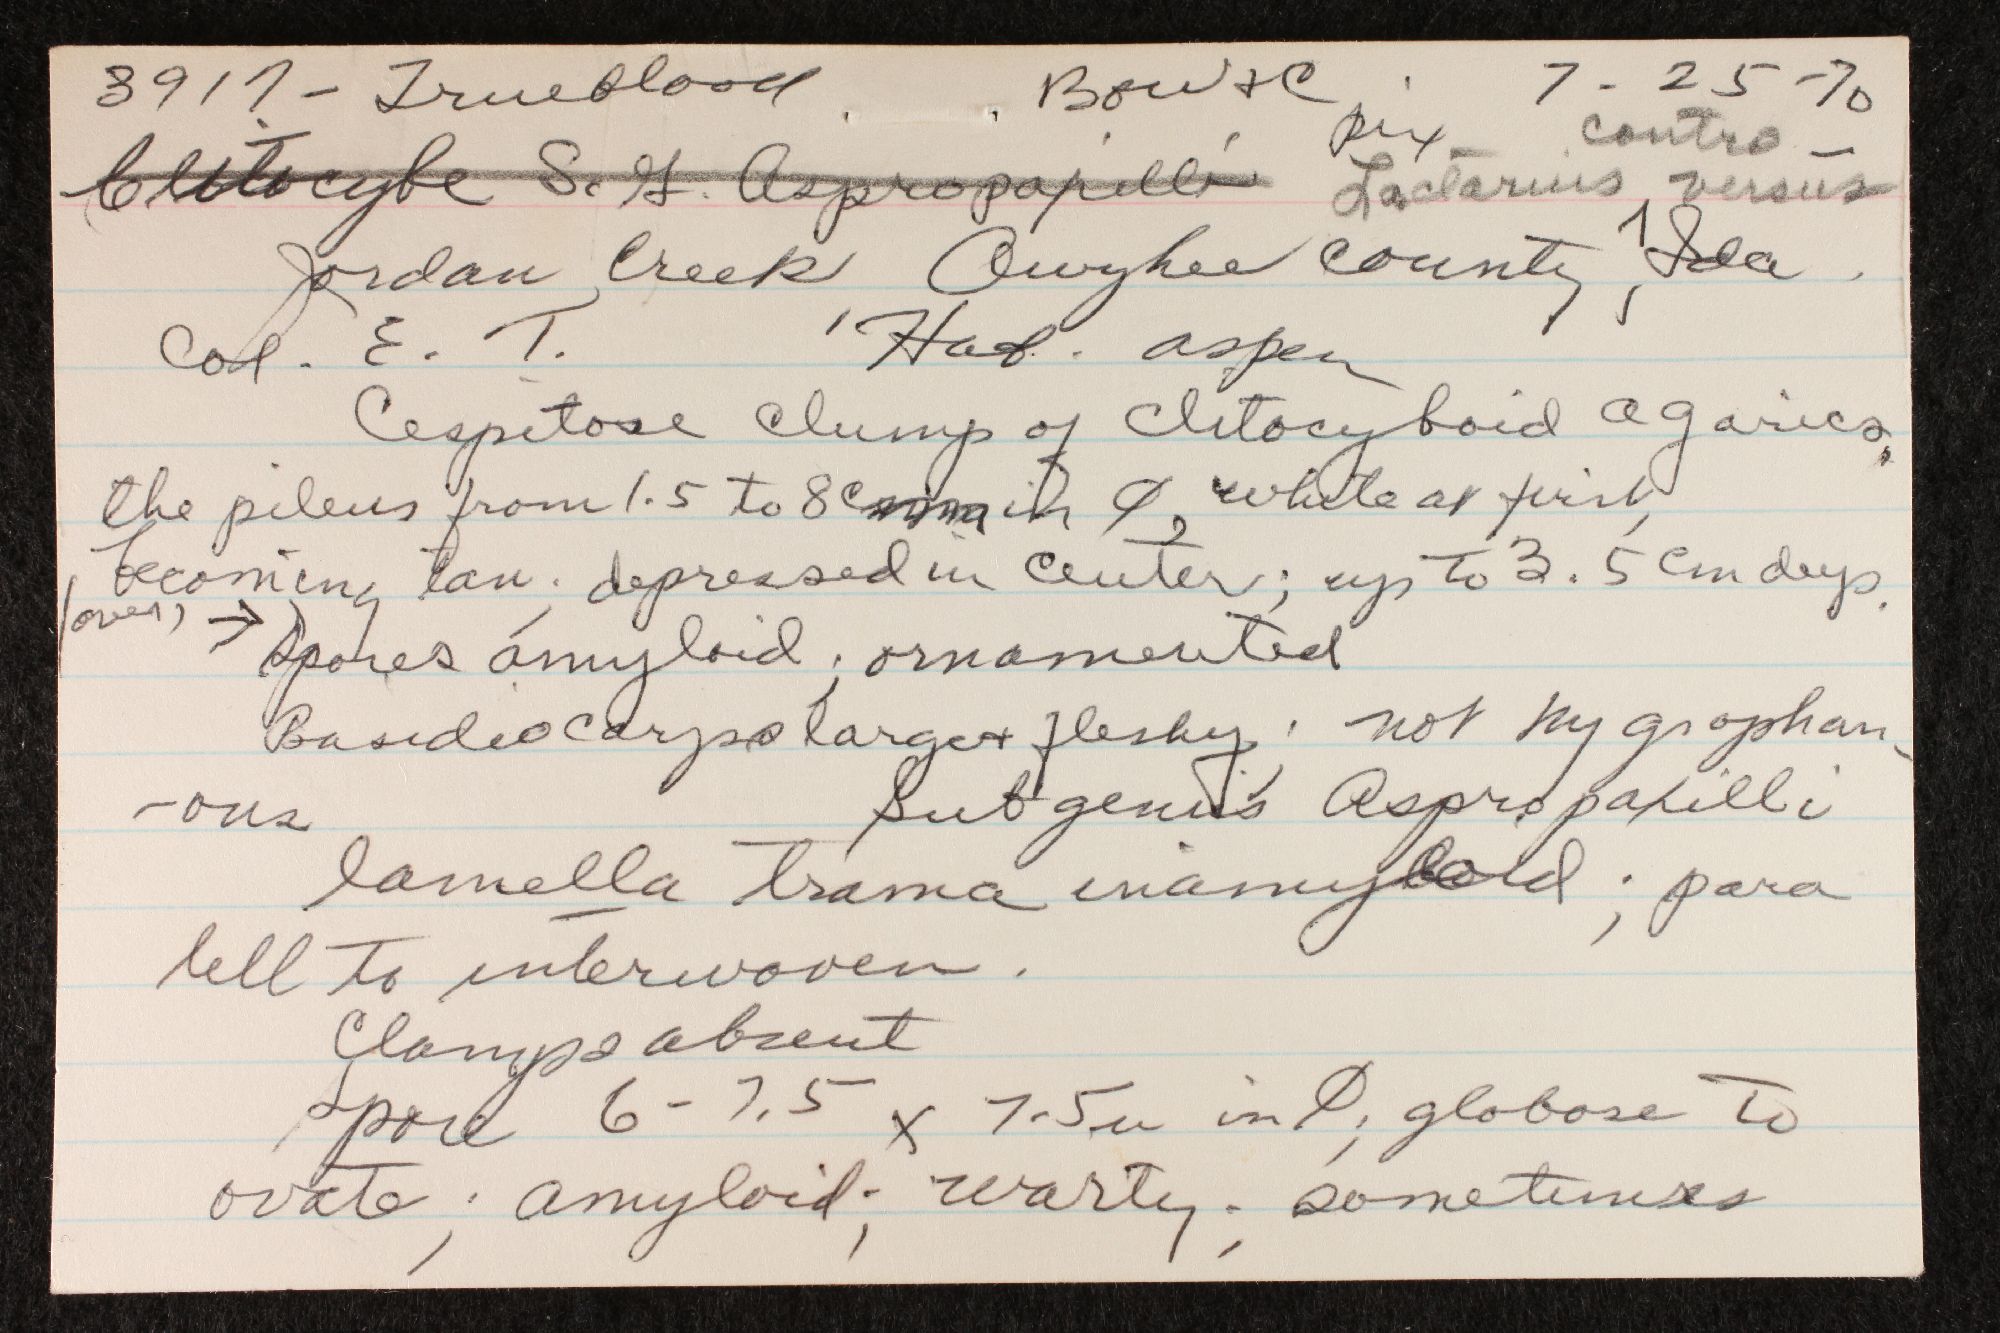 3917 - Trueblood B&W + C pix 7-25-70
Clitocybe S.G. Aspropaxilli Lactarius contro-versus
Jordan Creek Owyhee County, Ida.
Col. E. T. Hab. aspen
Cespitose clump of clitocyboid agarics,
the pileus from 1.5 to 8 cm in Ø, white at first,
becoming tan; depressed in center; up to 3.5 cm deep.
(over) → Spores amyloid; ornamented
Basidiocarps large & fleshy; not hygrophan-
-ous Subgenus Aspropaxilli
lamella trama inamyloid; para
lell to interwoven.
Clamps absent
Spore 6-7.5 x 7.5u in Ø; globose to
ovate; amyloid; warty; sometimes